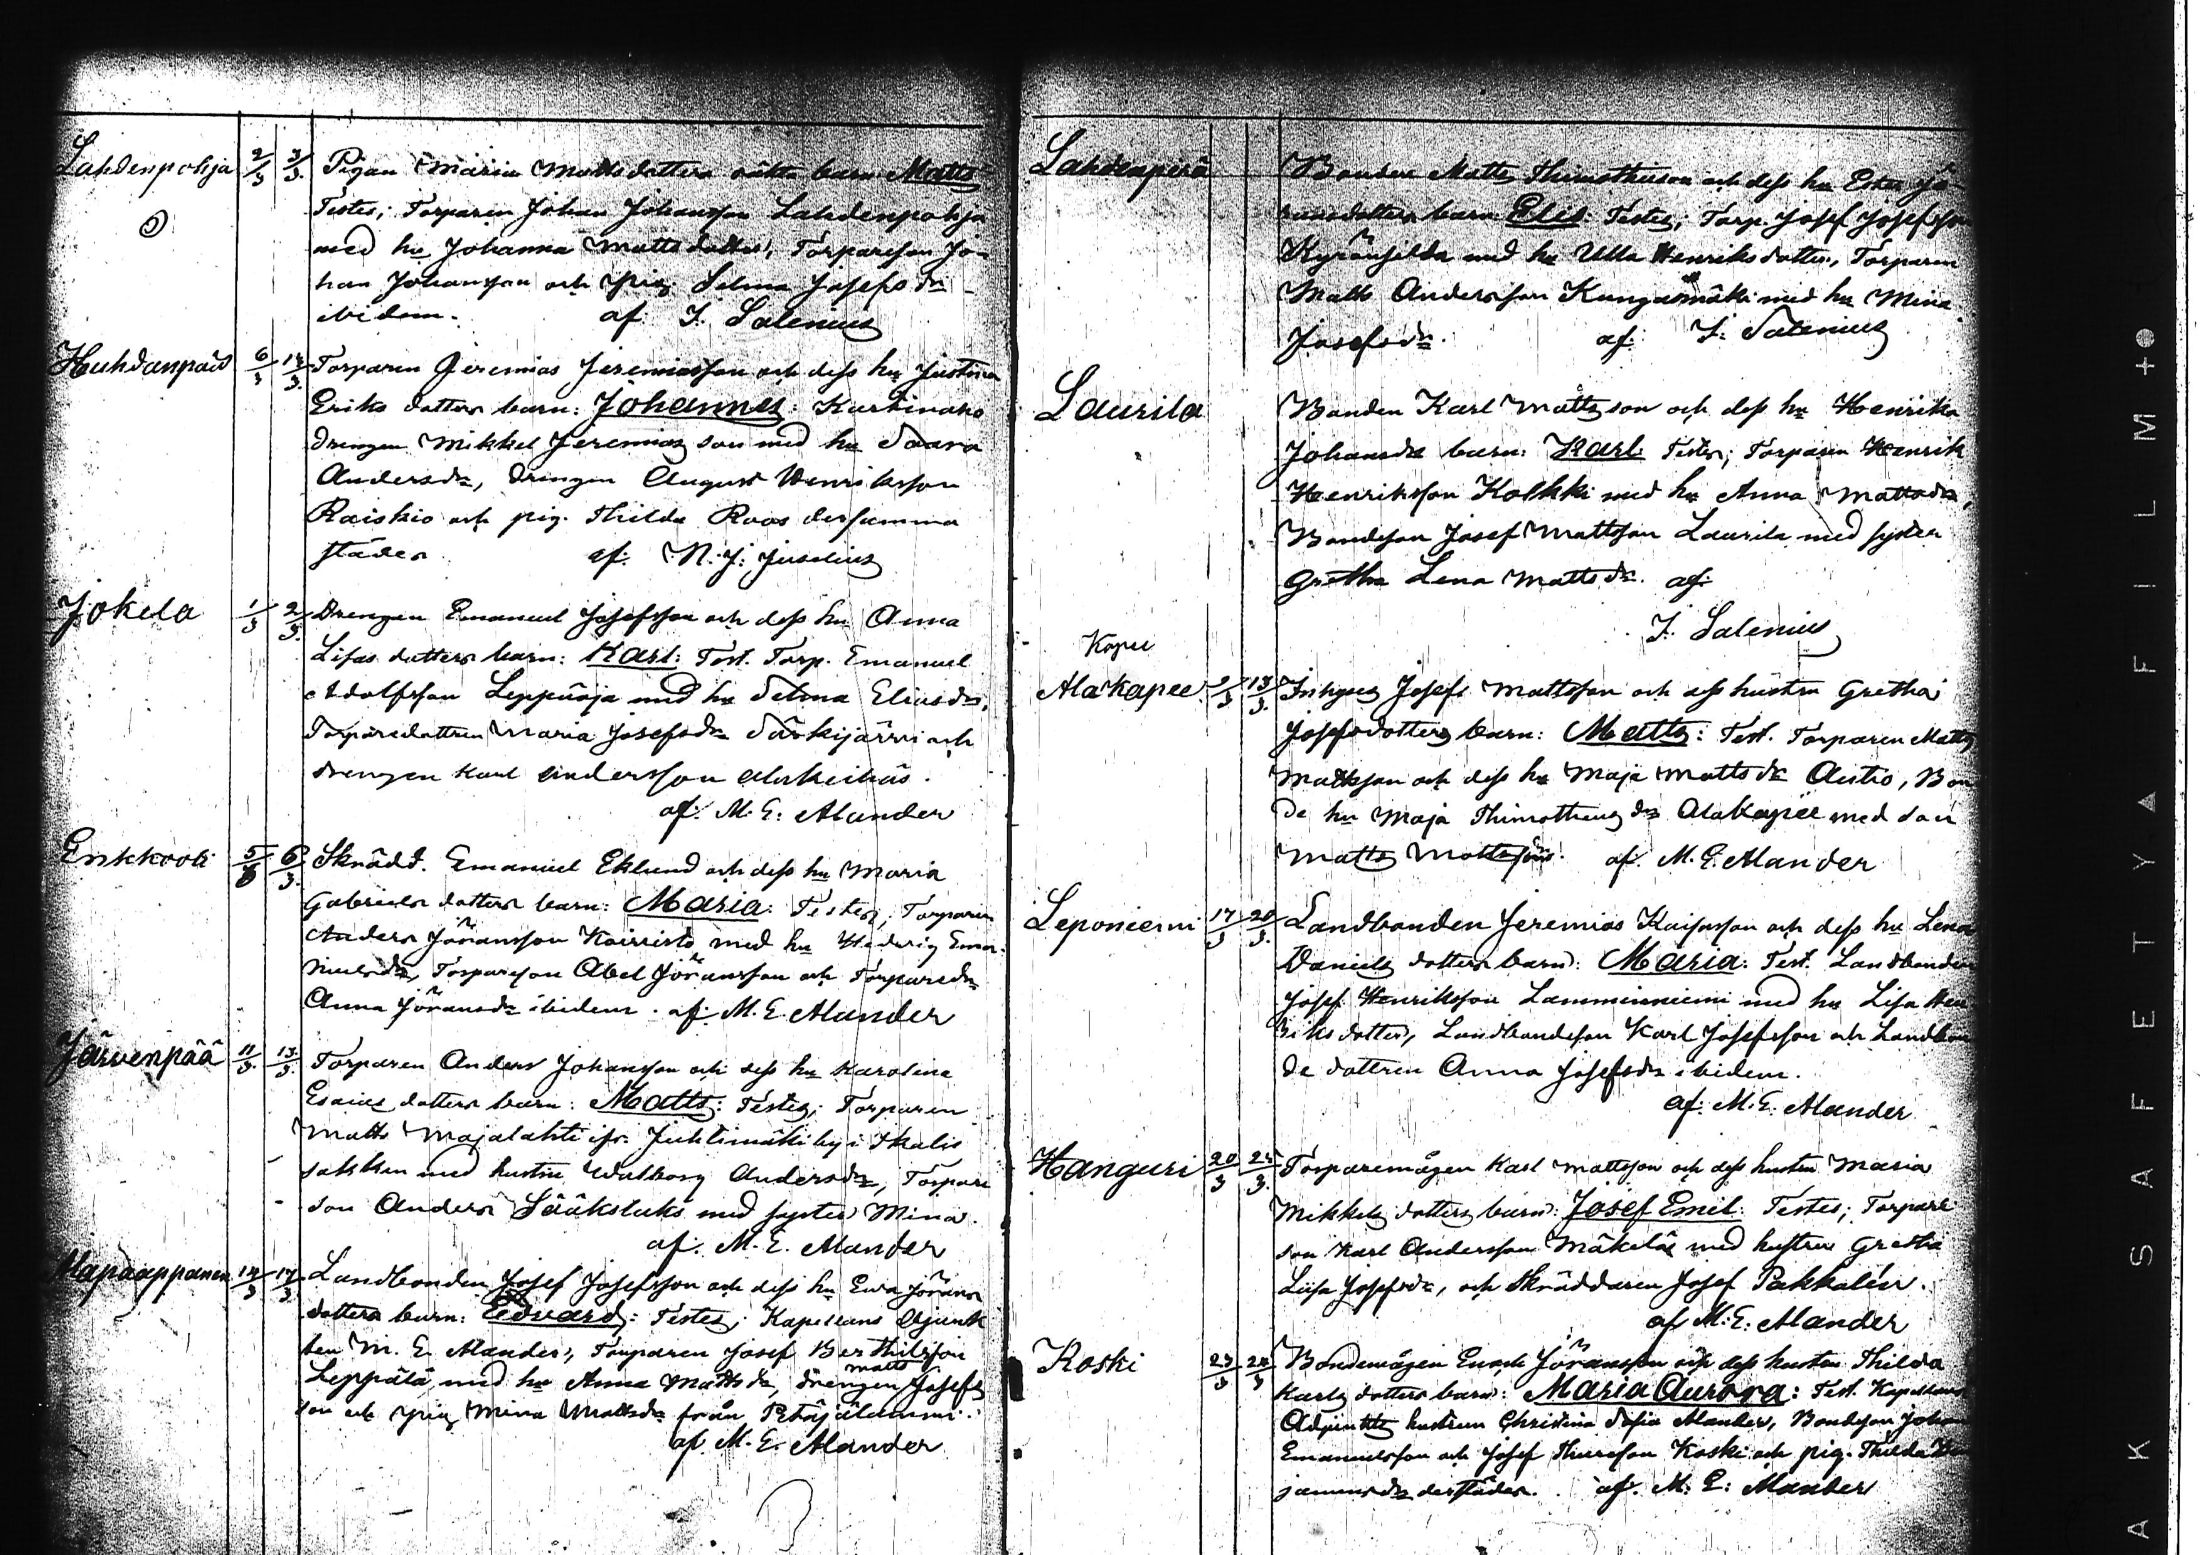 Lahdenpohja 2/3 3/3. Pigan Maria Matts dotters oäkta barn Matts
Testes; Torparen Johan Johansson Lahdenpohja
med hu Johanna Mattsdotter, Torpareson Jo-
han Johansson och pig. Selma Josefs dr
ibidem. af. J. Salenius
Huhdanpää 6/3 Torparen Jeremias Jeremiasson och dess hu Justina
Eriks dotters barn: Johannes:
drengen Mikkel Jeremias son med hu Saara
Andersdr, drengen August Henriksson
Raiskio och pig. Thilda Roos dersamma
städes af. N. J. Juselius
Jokela 1/3 2/3. Drengen Emanuel Josefsson och dess hu Anna
Lisas dotters barn: Karl: Test. Torp. Emanuel
Adolfsson Leppäoja med hu Selma Eliasdr,
Torparedottren Maria Josefsdr Särkijärvi och
drengen Karl Andersson
af. M. E. Alander
5/3 6/3. Skrädd. Emanuel Eklund och dess hu Maria
Gabriels dotters barn: Maria: Testes; Torparen
Anders Jöransson Koivisto med hu Hedvig Ema-
nuelsdr, Torpareson Abel Jöransson och Torparedr
Anna Jöransdr ibidem. af. M. E. Alander
Järvenpää 11/3. 13/3. Torparen Anders Johansson och dess hu Karolina
Esaias dotters barn: Matts: Testes; Torparen
Matts Majalahti ifr. Juhtimäki by i Ikalis
sokken med hustru Walborg Andersdr, Torpare
son Anders Sääksluks med syster Mina.
af. M. E. Alander
Landbonden Josef Josefsson och dess hu Ewa Jörans
dotters barn: Edvard: Testes; Kapellans Adjunk
ten M. E. Alander, Torparen Josef Berthilsson
matts
Leppälä med hu Anna Mattsdr, drengen Josefs
son och pig Mina Mattsdr från Petäjälammi.
af. M. E. Alander
Lahdenperä Bonden Matts Thimotheuson och dess hu Ester Jö-
ransdotters barn Elis: Testes; Torp. Josef Josefsson
med hu Ulla Henriksdotter, Torparen
Matts Andersson Kangasmäki med hu Mina
Josefsdr. af. J. Salenius
Laurila Bonden Karl Mattsson och dess hu Henrika
Johansdr barn: Karl: Testes; Torparen Henrik
Henriksson Kolkki med hu Anna Mattsdr,
Bondeson Josef Mattsson Laurila med syster
Gretha Lena Mattsdr. af.
J. Salenius
Kapee
Alakapee 13/3. Inhyses Josef Mattsson och dess hustru Gretha
Josefsdotters barn: Matts: Test. Torparen Matts
Mattsson och dess hu Maja Mattsdr Autio, Bon
de hu Maja Thimotheusdr Alakapee med son
Matts Mattsson. af. M. E. Alander
Leponiemi 17/3 20/3. Landbonden Jeremias Kaisasson och dess hu Lena
Daniels dotters barn: Maria: Test. Landbonden
Josef Henriksson Lamminniemi med hu Lisa Hen
riksdotter, Landbondeson Karl Josefsson och Landbon
de dottren Anna Josefsdr ibidem.
af. M. E. Alander
Hanguri 20/3 25/3. Torparemågen Karl Mattsson och dess hustru Maria
Mikkels dotters barn: Josef Emil: Testes; Torpare
son Karl Andersson Mäkelä med hustru Gretha
Liisa Josefsdr, och Skräddaren Josef Pakkalén.
af M. E. Alander
Koski 23/3 Bondemågen Enock Jöransson och dess hustru Thilda
Karls dotters barn: Maria Aurora: Test. Kapellans
Adjunkts hustrun Christina Sofia Alander, Bondeson Johan
Emanuelsson och Josef Thuresson Koski och pig. Thilda Ben
jaminsdr derstädes. af. M. E. Alander
AK SAFETY AFILM